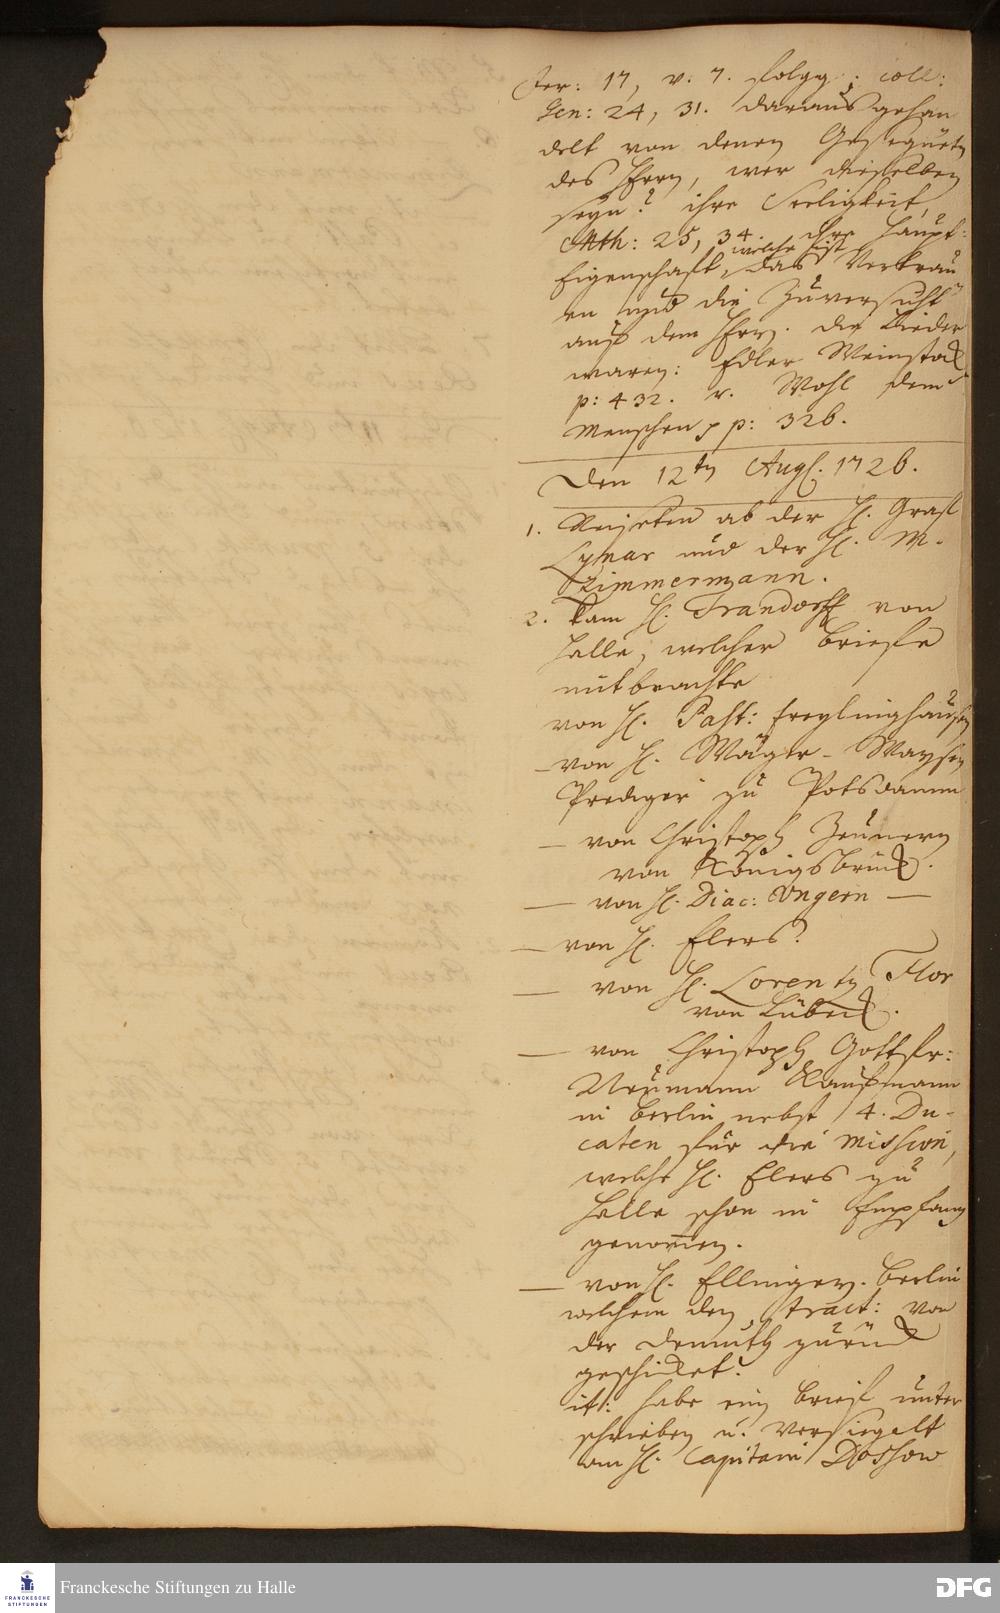 Jer: 17, v. 7. folgg: coll:
Gen: 24, 31. daraus gehan
delt von denen Gesegneten
des Herrn, wer dieselben
seyn? ihre Seeligkeit,
Mth: 25, 34. ihre Haupt-
Eigenschafft, welche ist das Vertrau
en und die Zuversicht
auf dem Herrn. die Lieder
waren: Edler Weinstock
p: 432. v. Wohl dem
Menschen p p: 326.
Den 12ten Aug. 1726.
1. Reiseten ab der H. Graf
Lynar und der H. M.
Zimmermann.
2. kam H. Trandorff von
Halle, welcher Briefe
mitbrachte
von H. Past: Freylinghausen
– von H. Wäger – Waysen
Prediger zu Potsdamm
– von Christoph Zeunern
von Königsbrück.
– von H. Diac: Ungern –
– von H. Elers.
– von H. Lorentz Flor
von Lübeck.
– von Christoph Gottfr:
Neumann Kauffmann
in Berlin nebst 4. Du-
caten für die Mission,
welche H. Elers zu
Halle schon in Empfang
genommen.
– von H. Ellinger. Berlin
welchem den tract: von
der Demuth zurück
geschicket.
it: habe ein Brief unter
schrieben u. versiegelt
am H. Capitain Dossow
Franckesche Stiftungen zu Halle
FRANCKESCHE
STIFTUNGEN
DFG